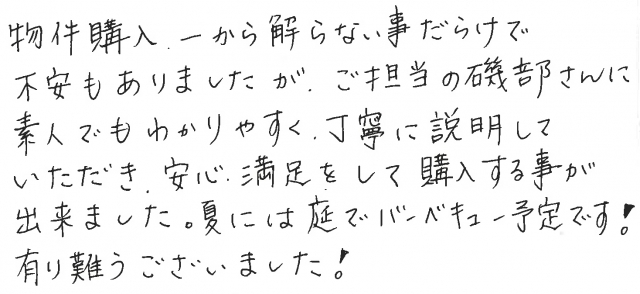 物件購入、一から解らない事だらけで
不安もありましたが、ご担当の磯部さんに
素人でもわかりやすく、丁寧に説明して
いただき、安心、満足をして購入する事が
出来ました。夏には庭でバーベキュー予定です!
有り難うございました!